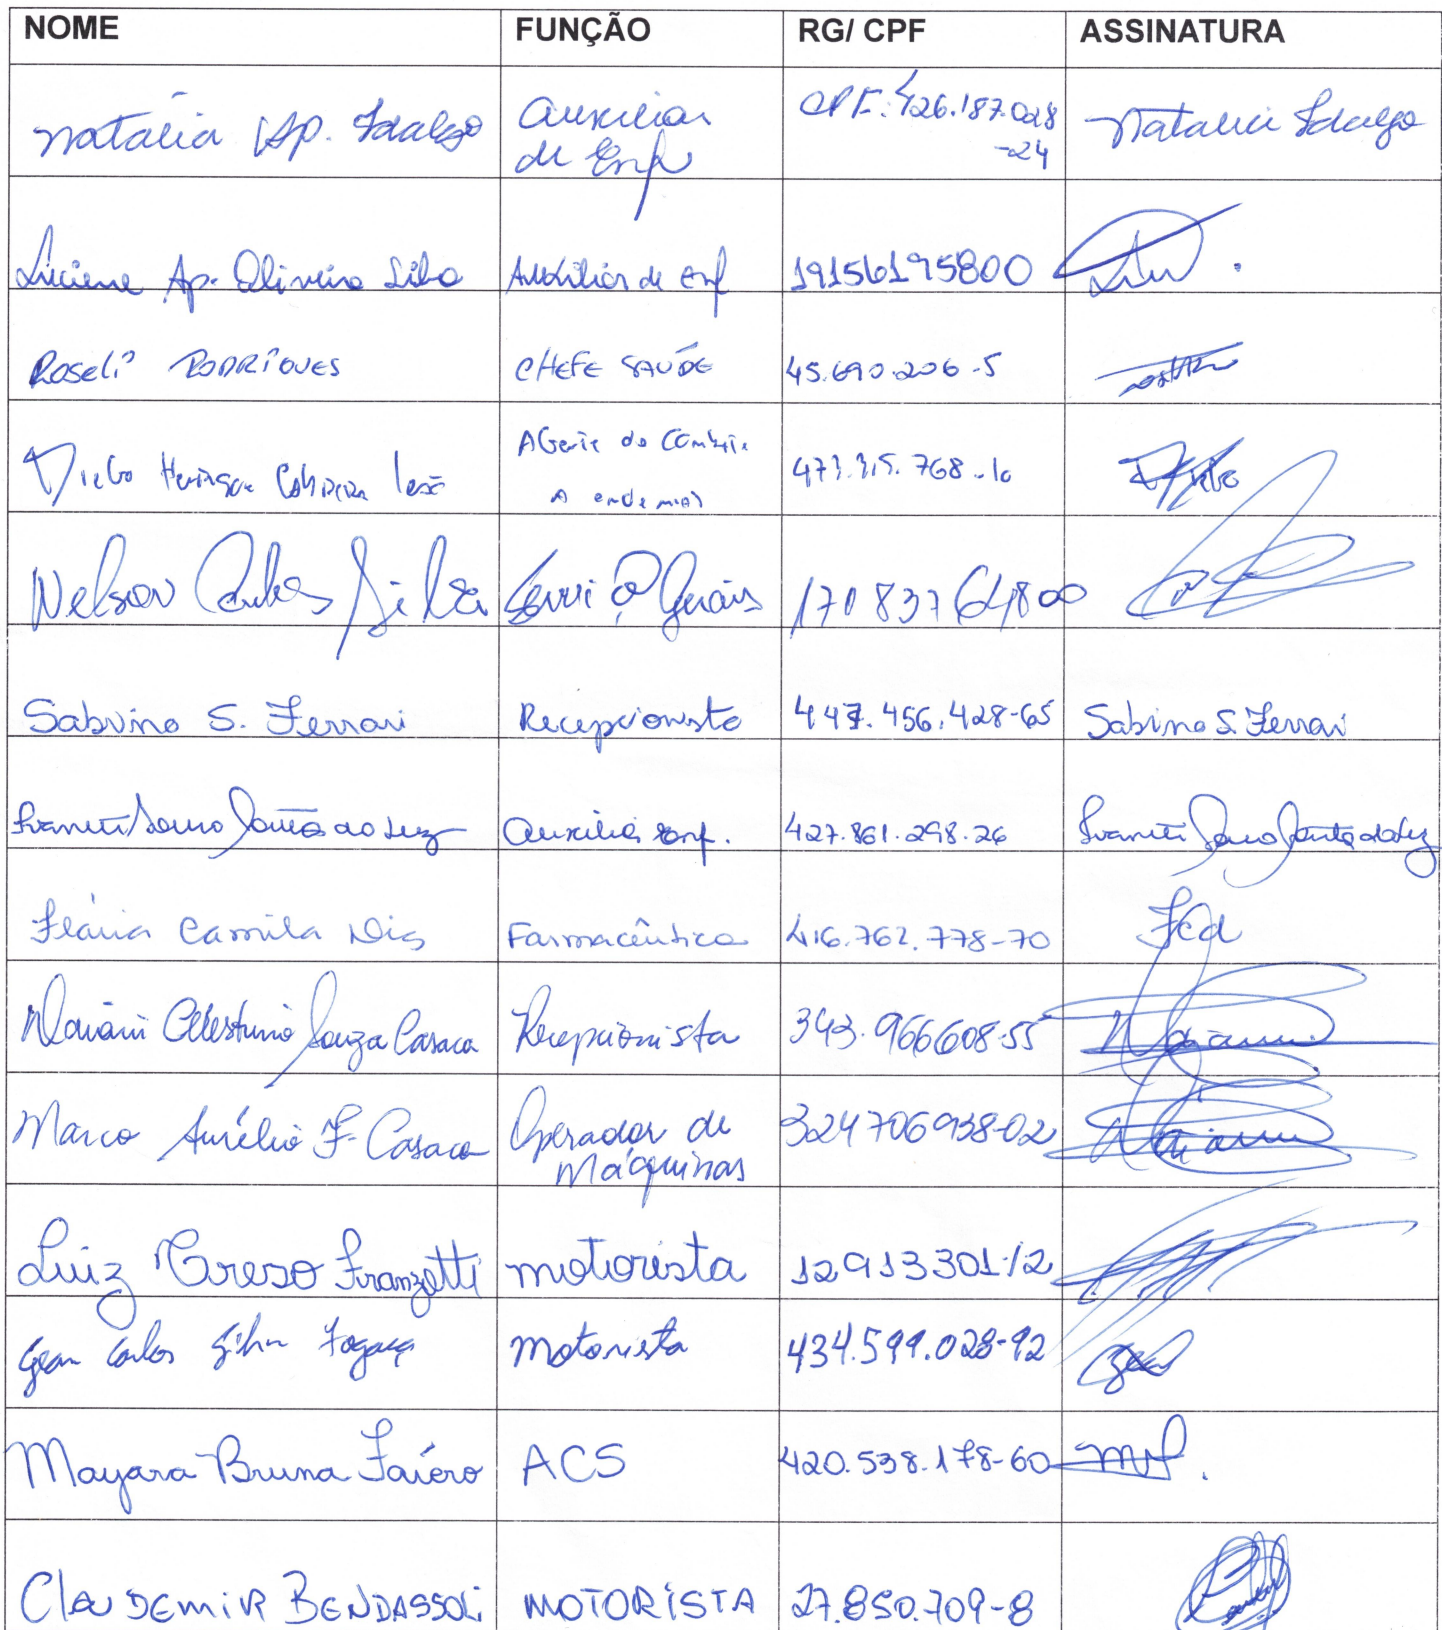 NOME FUNÇÃO RG/ CPF ASSINATURA
Natalia Ap. Idalgo Auxiliar de Enf CPF: 426.187.028-24 Natalia Idalgo
Luciene Ap. Oliveira Silva Auxiliar de Enf 19156195800
Roseli RODRIGUES CHEFE SAÚDE 45.690.206-5
Henrique Agente de Combate A endemias
Nelson Carlos Silva Serviço Gerais 17083764800
Sabrina S. Ferrari Recepcionista 447.456.428-65 Sabrina S. Ferrari
auxiliar enf. 427.861.298.26
Flávia Camila Dias Farmacêutica 416.762.778-70 Fcd
Mariani Celestino Souza Casaca Recepcionista 343.966608-55 Mariani
Marco Aurélio F. Casaca Operador de Máquinas 324706938-02
Luiz Franzotti motorista 12913301-12
Gean Carlos Silva Fogaça Motorista 434.599.028-92 Gean
Mayara Bruna Faiero ACS 420.538.178-60
CLAUDEMIR BENDASSOLI MOTORISTA 27.850.709-8